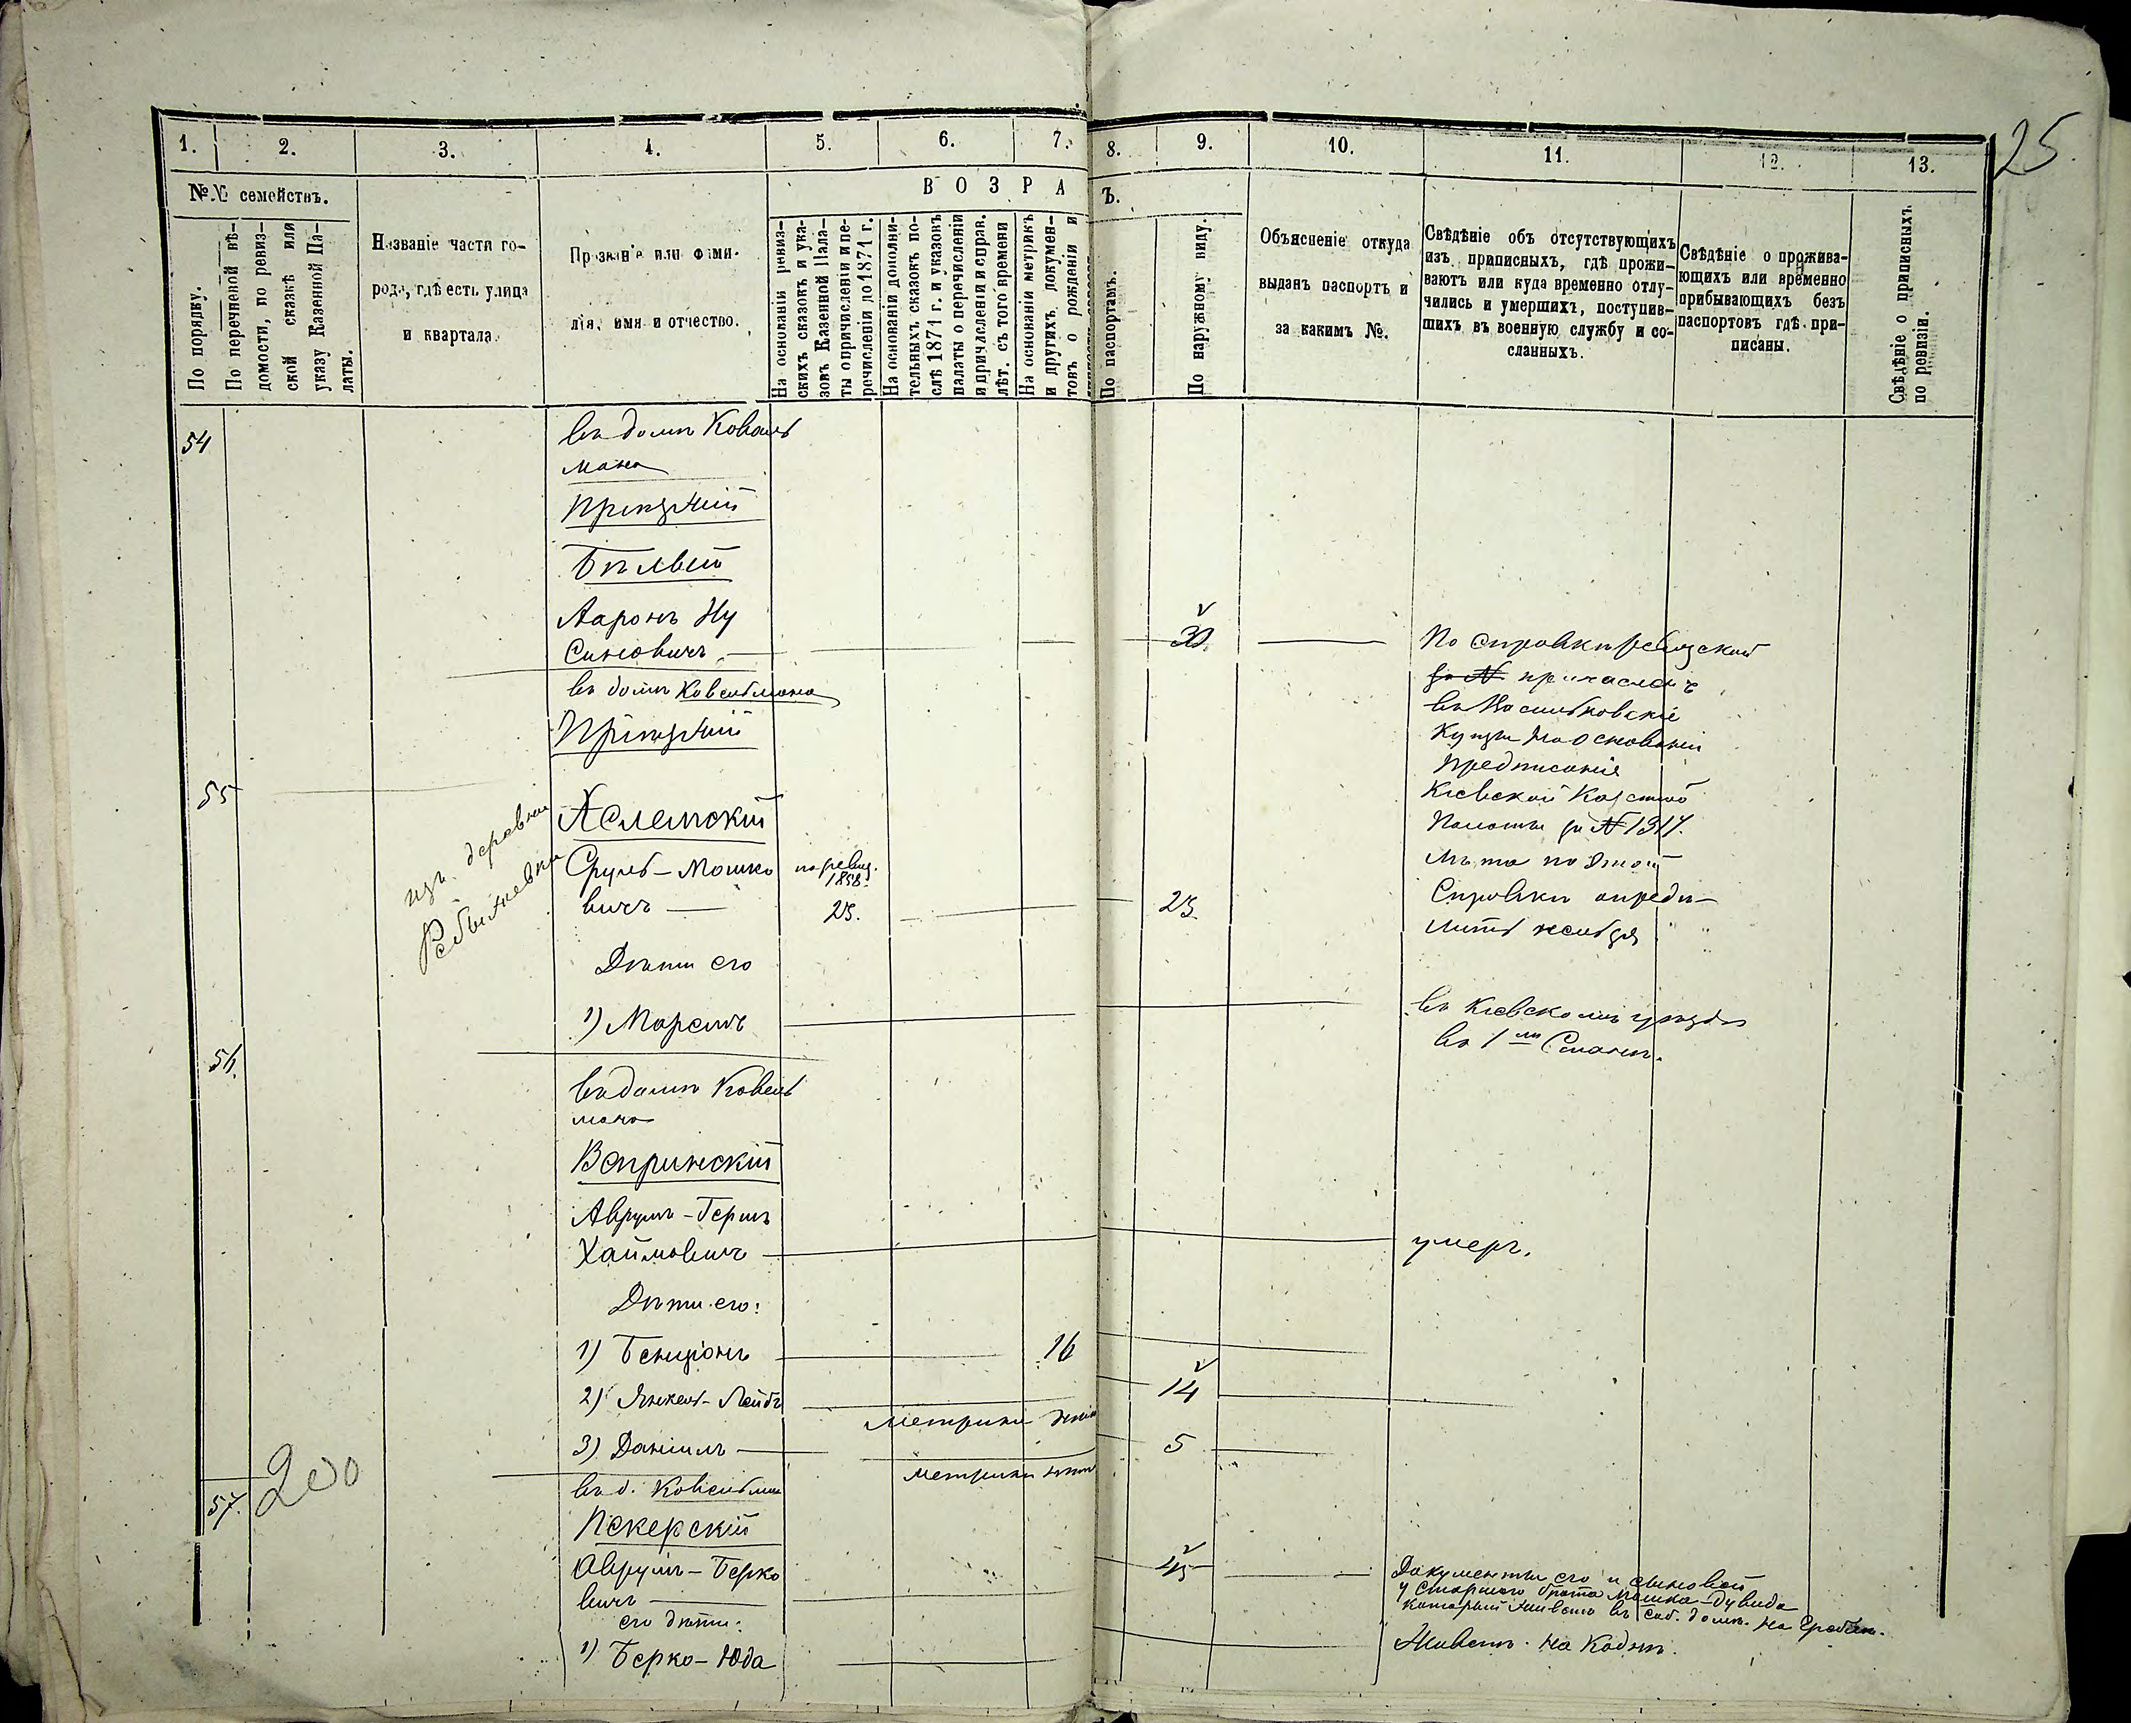 25.
1. 2. 3. 4. 5. 6. 7. 8. 9. 10. 11. 12. 13.
№№ семействъ.
По порядку.
По перечневой вѣ-
домости, по ревиз-
ской сказкѣ или
указу Казенной Па-
латы.
Названіе части го-
рода, гдѣ есть улица
и квартала.
Прозваніе или фами-
лія, имя и отчество.
ВОЗРА
Ъ.
На основаніи ревиз-
скихъ сказокъ и ука-
зовъ Казенной Пала-
ты о причисленіи и пе-
речисленіи до 1871 г.
На основаніи дополни-
тельныхъ сказокъ по-
слѣ 1871 г. и указовъ
палаты о перечисленіи
и причисленіи и справ.
лѣт. съ того времени
На основаніи метрикъ
и другихъ докумен-
товъ о рожденіи и
По паспортамъ.
По наружному виду.
Объясненіе откуда
выданъ паспортъ и
за какимъ №.
Свѣдѣніе объ отсутствующихъ
изъ приписныхъ, гдѣ прожи-
ваютъ или куда временно отлу-
чились и умершихъ, поступив-
шихъ въ военную службу и со-
сланныхъ.
Свѣдѣніе о прожива-
ющихъ или временно
прибывающихъ безъ
паспортовъ гдѣ при-
писаны.
Свѣдѣніе о приписныхъ
по ревизіи.
54
въ домѣ Коваль
мана
Пріѣзжій
Бѣлый
Ааронъ Ну
синовичъ 30
По справкѣ ревизской
за № причисленъ
въ Васильковскіе
Купцы на основаніи
предписанія
Кіевской Казенной
Палаты за № 1317.
лѣта по этой
Справки опредѣ-
лить нельзя
въ домѣ Ковельмана
Пріѣзжій
55
изъ деревни
Хелемскій
Сруль-Мошко по ревиз. 1858.
вичъ 25. 25
Дѣти его
1) Марелъ
въ Кіевскомъ уѣздѣ
въ 1мъ Станѣ.
56.
въ домѣ Ковель
мана
Вепринскій
Аврумъ-Герш
Хаймовичъ умеръ.
Дѣти его:
1) Бенціонъ 16
2) Янкель-Лейбъ 14
метрики нѣтъ
3) Даніилъ 5
метрики нѣтъ
57. 200
въ д. Ковельман
Пекерскій
Аврумъ-Берко
вичъ 45
Документы его и сыновей
у старшаго брата Мошка-Дувида
который живетъ въ соб. домѣ. на
его дѣти:
1) Берко-Юда Живетъ на